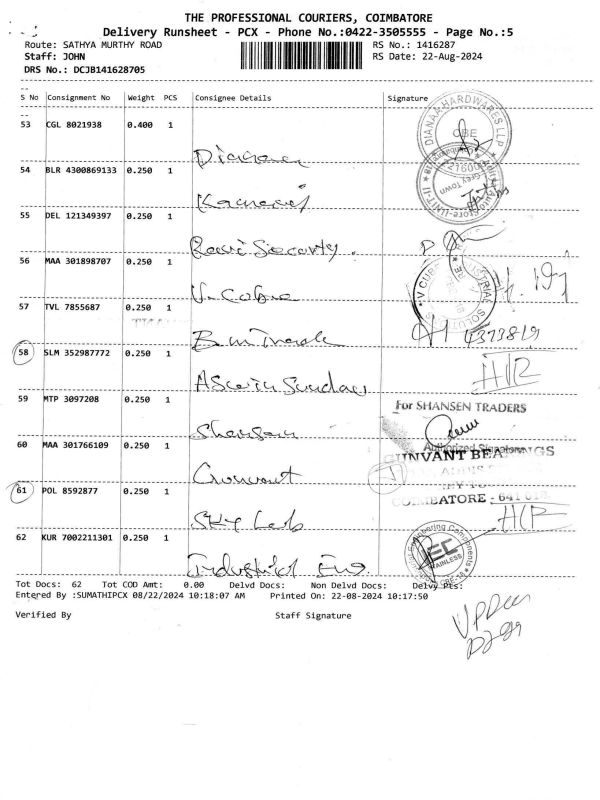 THE PROFESSIONAL COURIERS, COIMBATORE
Delivery Runsheet - PCX - Phone No.:0422-3505555 - Page No.:5
Route: SATHYA MURTHY ROAD RS No.: 1416287
Staff: JOHN RS Date: 22-Aug-2024
DRS No.: DCJB141628705
S No Consignment No Weight PCS Consignee Details Signature
53 CGL 8021938 0.400 1
DIANAA HARDWARES LLP
CBE
54 BLR 4300869133 0.250 1
Kamaraj
55 DEL 121349397 0.250 1
Ravi Security.
56 MAA 301898707 0.250 1
V-Cube
57 TVL 7855687 0.250 1
B.M Trade
58 SLM 352987772 0.250 1
Aswin Sundar
59 MTP 3097208 0.250 1
For SHANSEN TRADERS
Shansan
Authorized Signatory
60 MAA 301766109 0.250 1
GUNVANT BEARINGS
Gunvant
61 POL 8592877 0.250 1
COIMBATORE - 641 018
Sky Lab
62 KUR 7002211301 0.250 1
Industrial Eng
Tot Docs: 62 Tot COD Amt: 0.00 Delvd Docs: Non Delvd Docs: Delvy Pts:
Entered By :SUMATHIPCX 08/22/2024 10:18:07 AM Printed On: 22-08-2024 10:17:50
Verified By Staff Signature